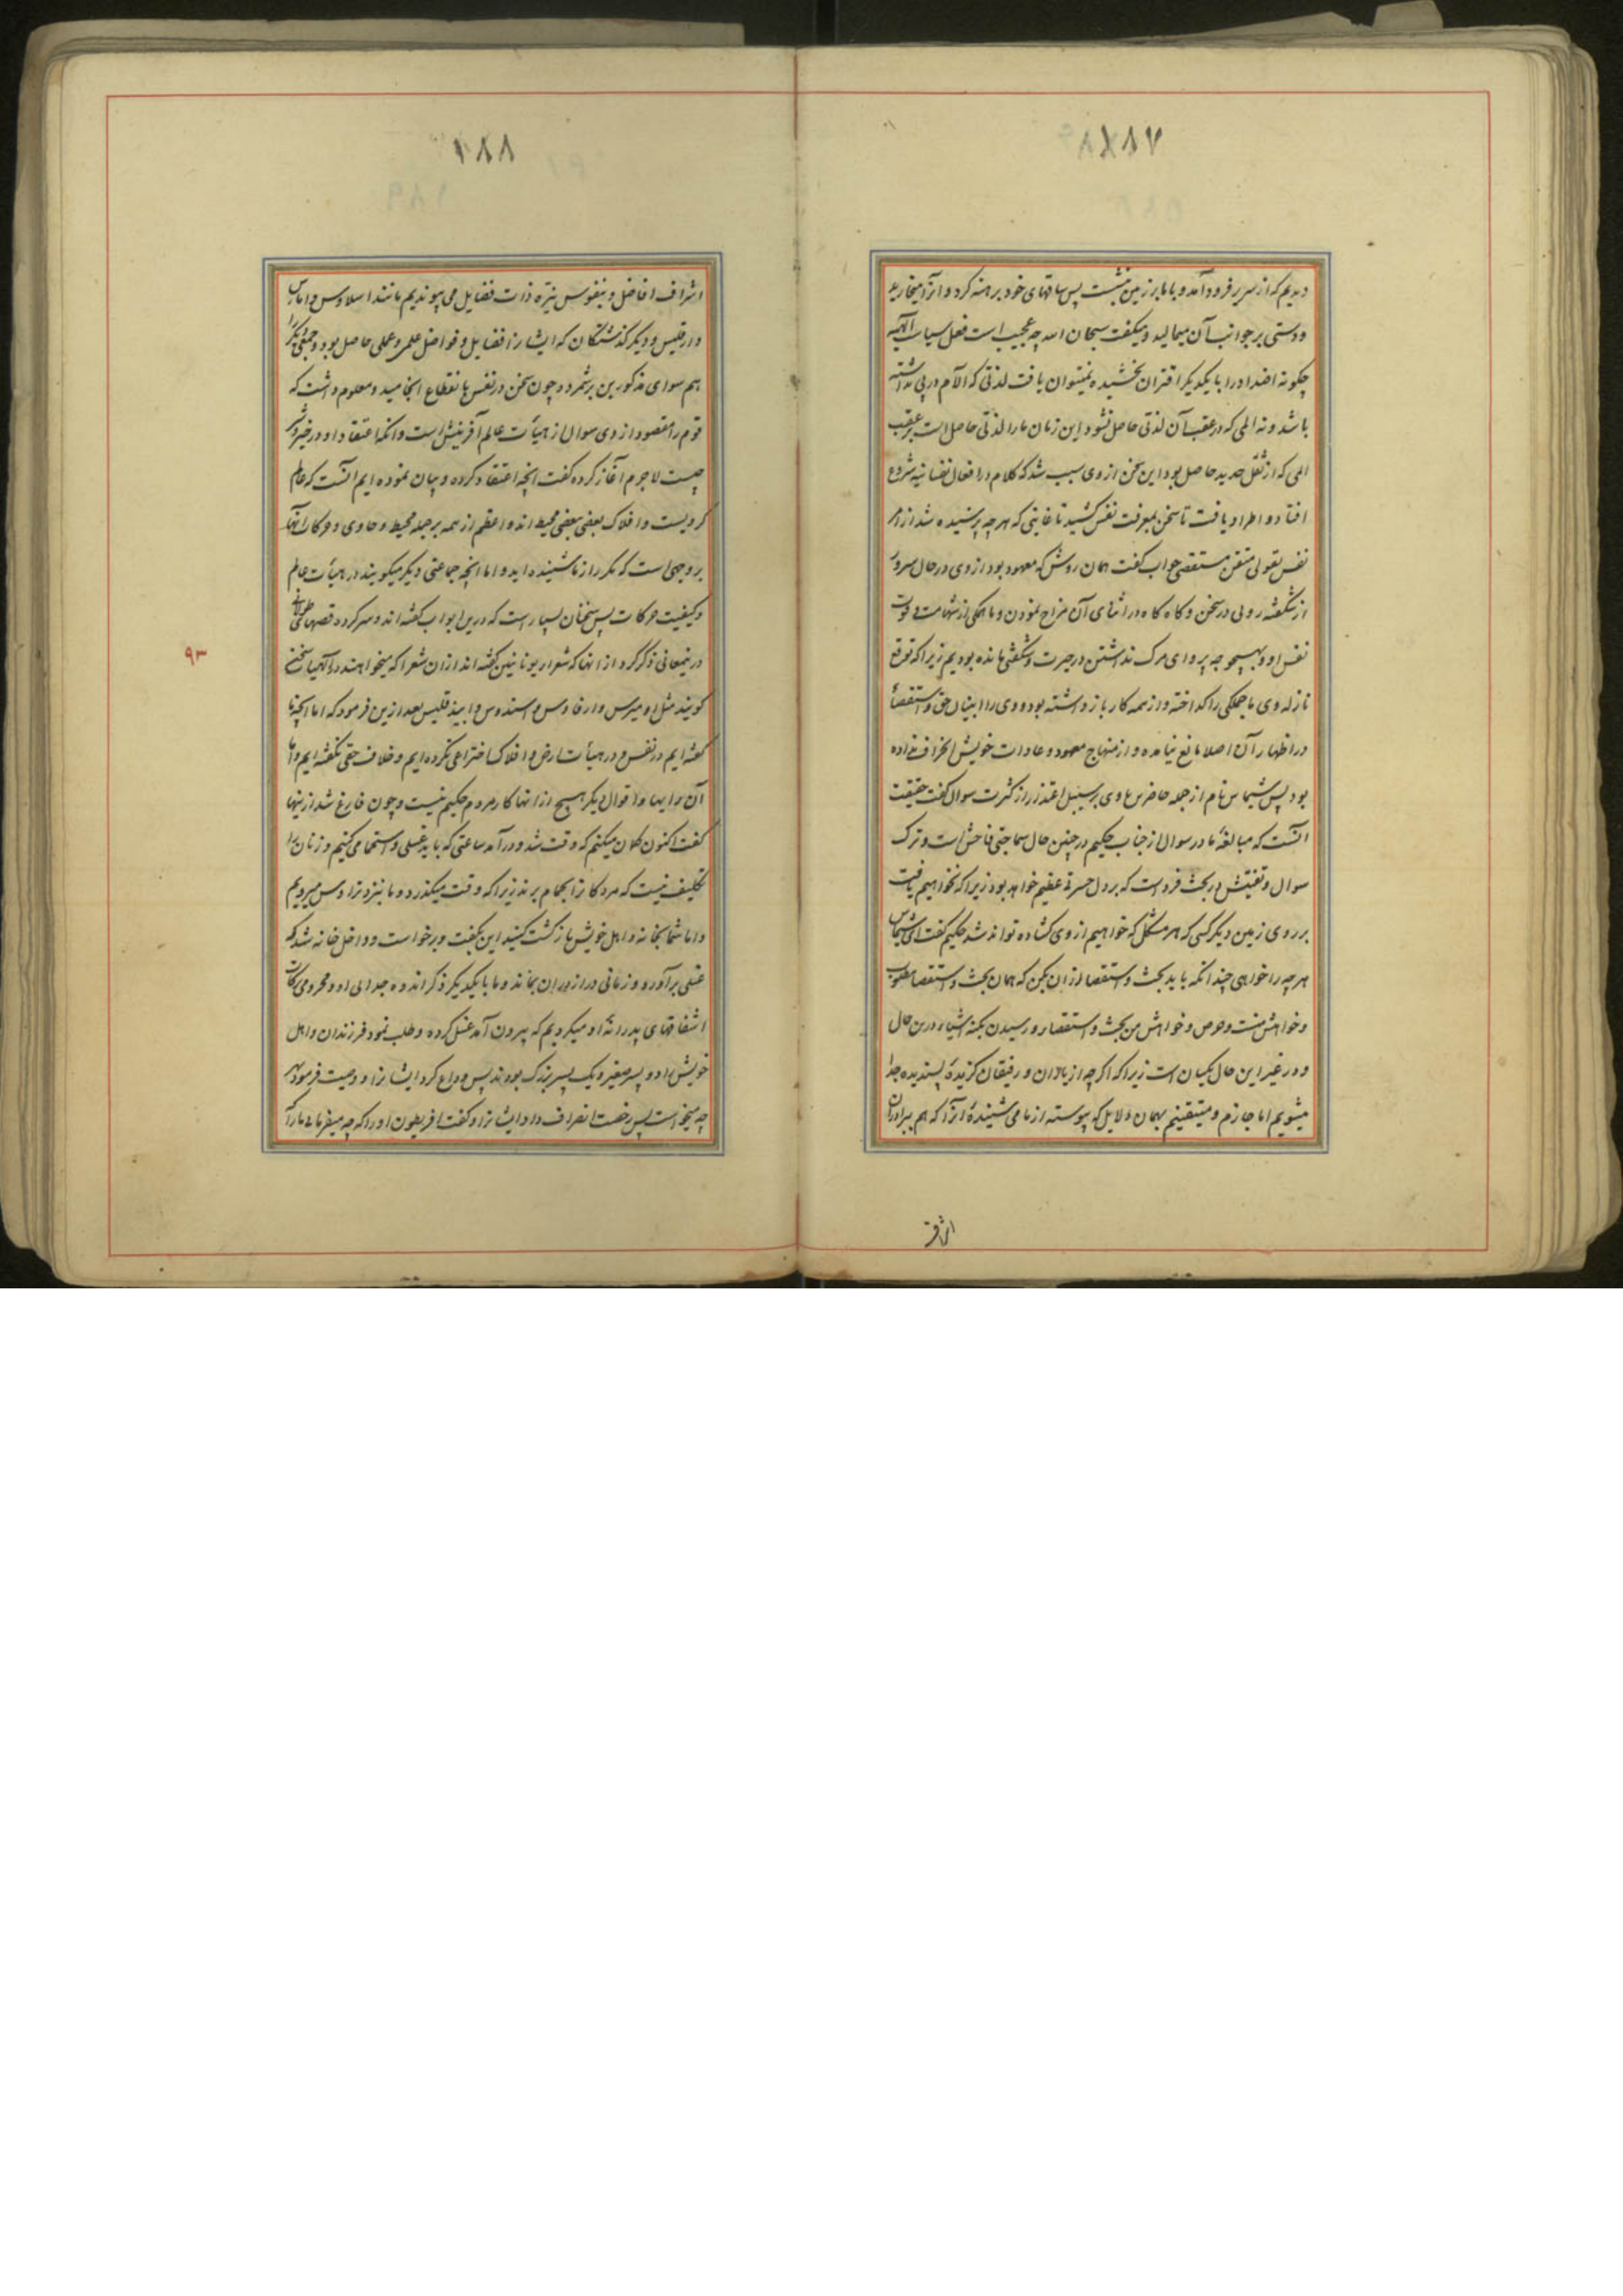 ۱۸۷
دیدیم که از سریر فرود آمد و با ما بر زمین نشست پس ساقهای خود برهنه کرد و انرا میخارید
و دستی بر جوانب آن میمالید و میگفت سبحان الله چه عجیب است فعل سیاسات الهیه
چگونه اضداد را با یکدیگر اقتران بخشیده نمیتوان یافت لذتی که الآم در پی نداشته
باشد و نه المی که در عقب آن لذتی حاصل نشود این زمان ما را لذتی حاصل است بر عقب
المی که از ثقل حدید حاصل بود این سخن از وی سبب شد که کلام در افعال نفسانیه شروع
افتاد و اطراد یافت تا سخن بمعرفت نفس کشید تا غایتی که هر چه پرسیده شد از امر
نفس بقولی متقن مستقصی جواب گفت همان روش که معهود بود از وی در حال سرور
از شگفته رویی در سخن و کاه کاه در اثنای آن مزاح نمودن و ما همگی از شهامت و قوت
نفس او و بهیچوجه پروای مرک نداشتن در حیرت و شگفتی مانده بودیم زیرا که توقع
نازله وی ما جملگی را گداخته و از همه کار باز داشته بود و وی را از بیان حق و استقصاء
در اظهار آن اصلا مانع نیامده و از منهاج معهود و عادات خویش انحراف نداده
بود پس شیماس نام از جمله حاضرین با وی بر سبیل اعتذار از کثرت سوال گفت حقیقت
آنست که مبالغه ما در سوال از جناب حکیم در چنین حال سماجتی فاحش است و ترک
سوال و تفتیش در بحث فردا است که بر دل حسرتی عظیم خواهد بود زیرا که نخواهیم یافت
بر روی زمین دیگر کسی که هر مشکل که خواهیم از وی کشاده تواند شد حکیم گفت ای شیماس
هر چه را خواهی چندانکه باید بحث و استقصا از آن بکن که همان بحث و استقصا مطلوب
و خواهش منست و حرص و خواهش من بحث و استقصا و رسیدن بکنه اشیاء در این حال
و در غیر این حال یکسان است زیرا که اگر چه از یاران و رفیقان گزیدهٔ پسندیده جدا
میشویم اما جازم و متیقنیم بهمان دلایل که پیوسته از ما می شنیده‌ٔ انرا که هم ببرادران
اشراف
۱۸۸
اشراف افاضل و بنفوس نیره ذات فضایل می پیوندیم مانند اسلاوس و امارس
و ارقلیس و دیگر گذشتگان که ایشانرا فضایل و فواضل علمی و عملی حاصل بود و جمعی دیگر را
هم سوای مذکورین برشمرد و چون سخن در نفس بانقطاع انجامید و معلوم داشت که
قوم را مقصود از وی سوال از هیأت عالم آفرینش است و آنکه اعتقاد او در خیر و شر
چیست لاجرم آغاز کرده گفت انچه اعتقاد کرده و بیان نموده ایم آنست که عالم
کرویست و افلاک بعضی ببعضی محیط اند و اعظم از همه بر جمله محیط و حاوی و حرکات آنها
بر وجهی است که مکرر از ما شنیده اید و اما انچه جماعتی دیگر میگویند در هیأت عالم
و کیفیت حرکات پس سخنان بسیار است که درین ابواب گفته اند و سر کرده قصهای طولانی
درینمعانی ذکر کرد از انها که شعرای یونانیین گفته اند از ان شعرا که میخواهند در الهیات سخن
گویند مثل اومیرس و ارفاوس و اسندوس و ابیذقلیس بعد ازین فرمود که اما انچه ما
گفته ایم در نفس و در هیأت ارض و افلاک اختراعی نکرده ایم و خلاف حقی نگفته ایم و اما
آن رأیها و اقوال دیگر هیچ از انها کار مردم حکیم نیست و چون فارغ شد از اینها
گفت اکنون گمان میکنم که وقت شد و در آمد ساعتی که باید غسلی و استحمامی کنیم و زنان را
تکلیف نیست که مردگانرا بحمام برند زیرا که وقت میگذرد و ما بنزد زاوس میرویم
و اما شما بخانه و اهل خویش بازگشت کنید این بگفت و برخواست و داخل خانه شد که
غسلی بر آورد و زمانی دراز در ان بماند و ما با یکدیگر ذکر اندوه جدایی او و محرومی از کمال
اشفاقهای پدرانه او میکردیم که بیرون آمد غسل کرده و طلب نمود فرزندان و اهل
خویش او دو پسر صغیر و یک پسر بزرگ بودند پس وداع کرد ایشانرا و وصیت فرمود بهر
چه میخواست پس رخصت انصراف داد ایشانرا و گفت افریطون او را که چه میفرمایی ما را
۹۳